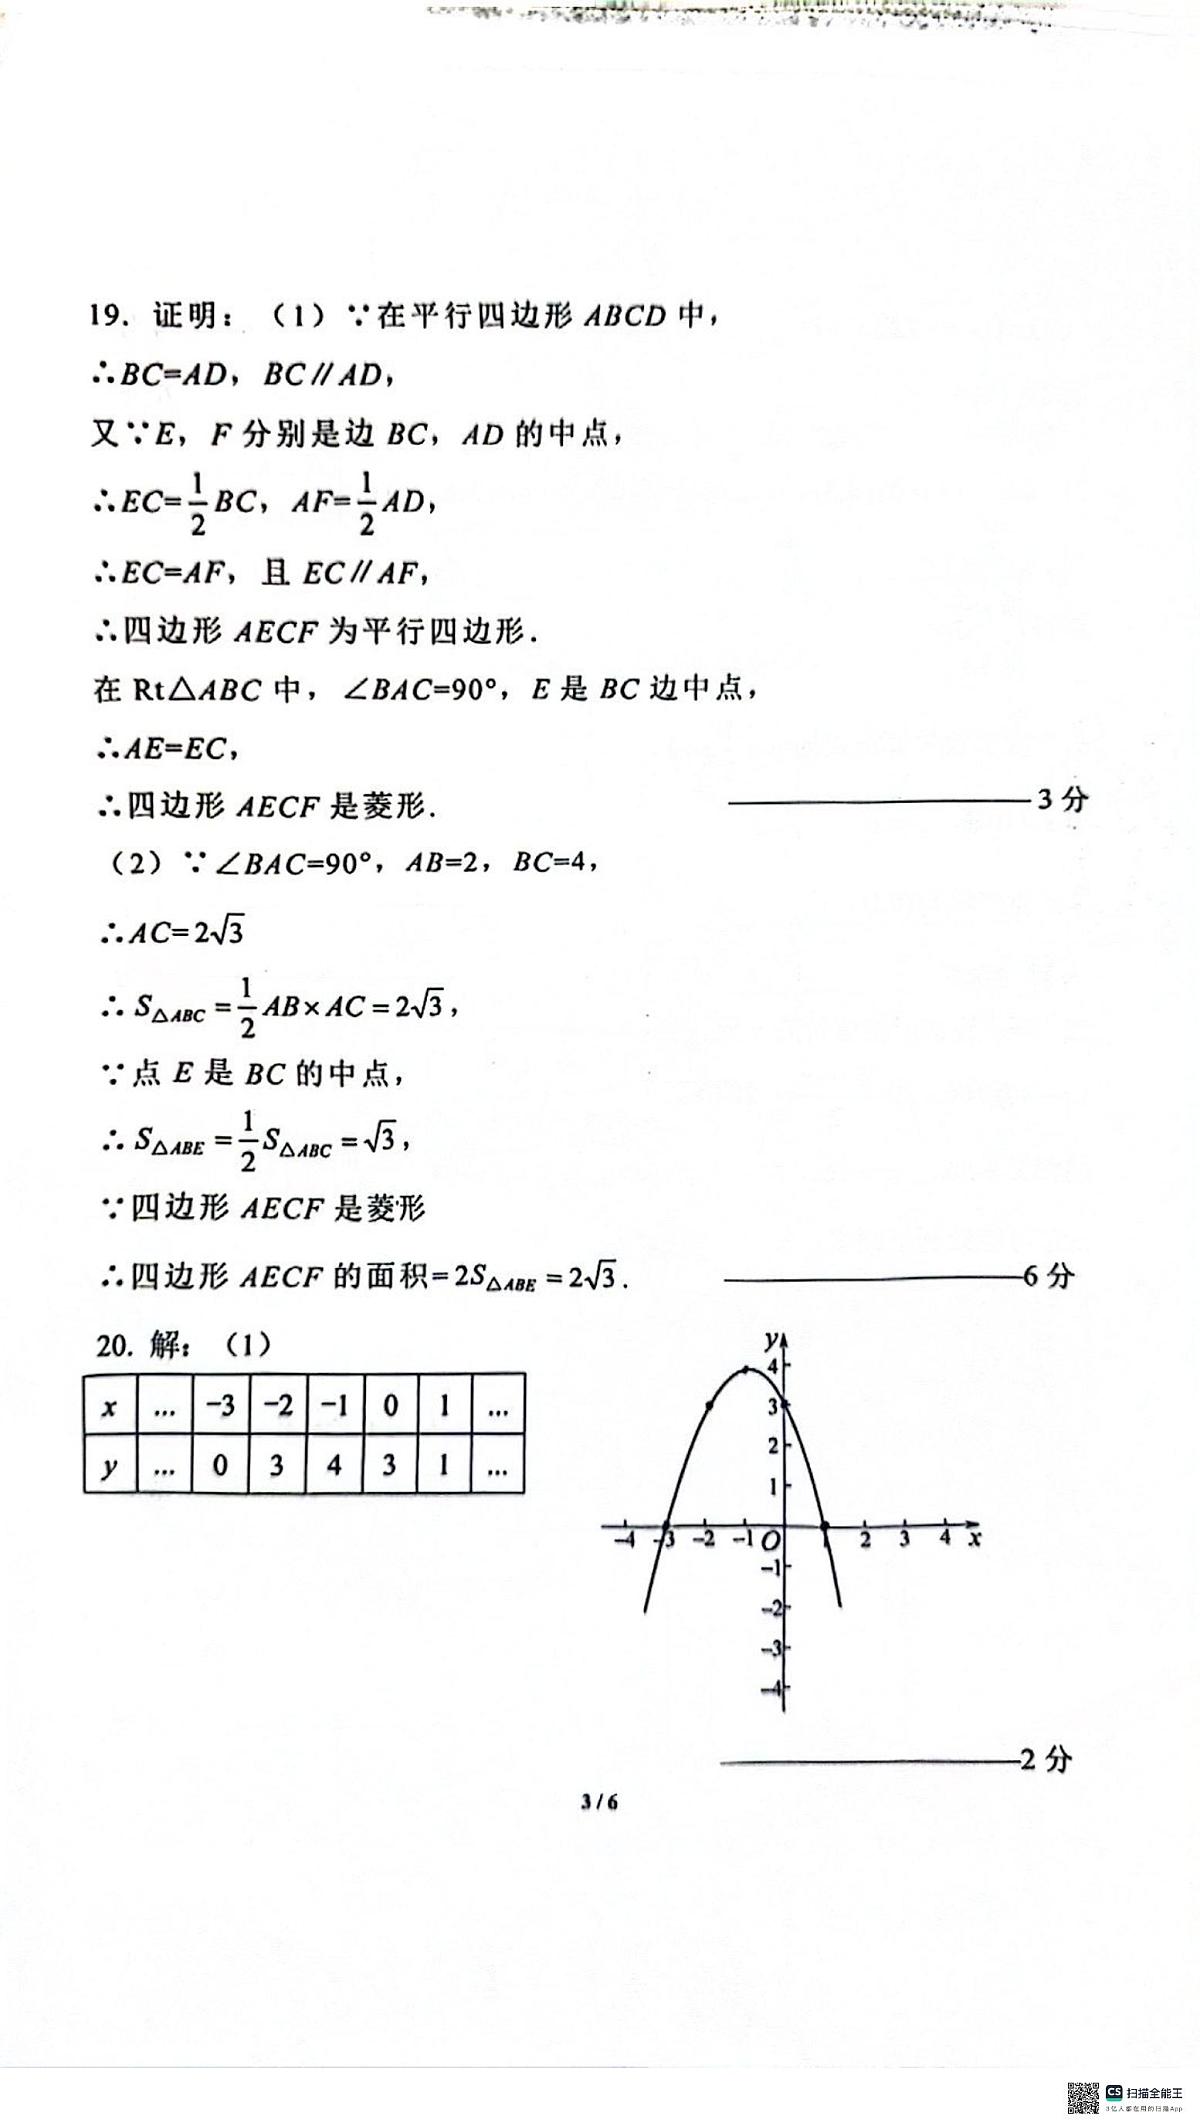 19. 证明：（1）∵在平行四边形 ABCD 中，
∴BC=AD，BC∥AD，
又∵E，F 分别是边 BC，AD 的中点，
∴EC=1/2 BC，AF=1/2 AD，
∴EC=AF，且 EC∥AF，
∴四边形 AECF 为平行四边形.
在 Rt△ABC 中，∠BAC=90°，E 是 BC 边中点，
∴AE=EC，
∴四边形 AECF 是菱形. ————3 分
（2）∵∠BAC=90°，AB=2，BC=4，
∴AC=2√3
∴S△ABC=1/2 AB×AC=2√3，
∵点 E 是 BC 的中点，
∴S△ABE=1/2 S△ABC=√3，
∵四边形 AECF 是菱形
∴四边形 AECF 的面积=2S△ABE=2√3. ————6 分
20. 解：（1）
x … -3 -2 -1 0 1 …
y … 0 3 4 3 1 …
y
4
3
2
1
-4 -3 -2 -1 O 1 2 3 4 x
-1
-2
-3
-4
————2 分
3 / 6
CS 扫描全能王
3亿人都在用的扫描App